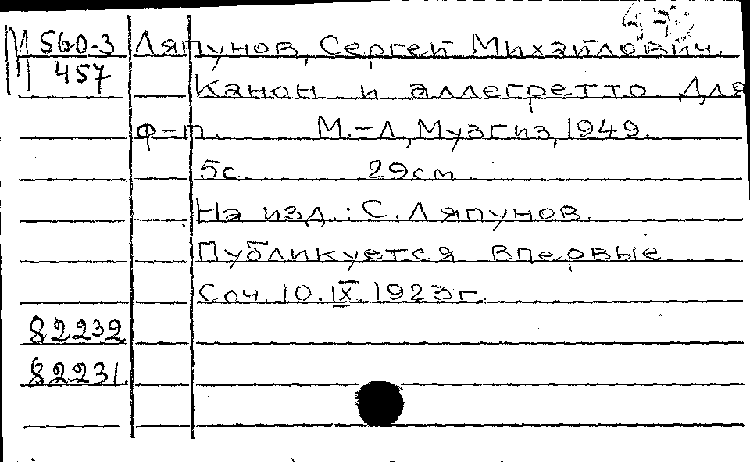 М 560-3 Ляпунов, Сергей Михайлович.
457
Канон и аллегретто для
ф-п. М.-Л, Музгиз, 1949.
5с. 29см
На изд.: С. Ляпунов.
Публикуется впервые
Соч. 10.IX.1923г.
82232
82231.